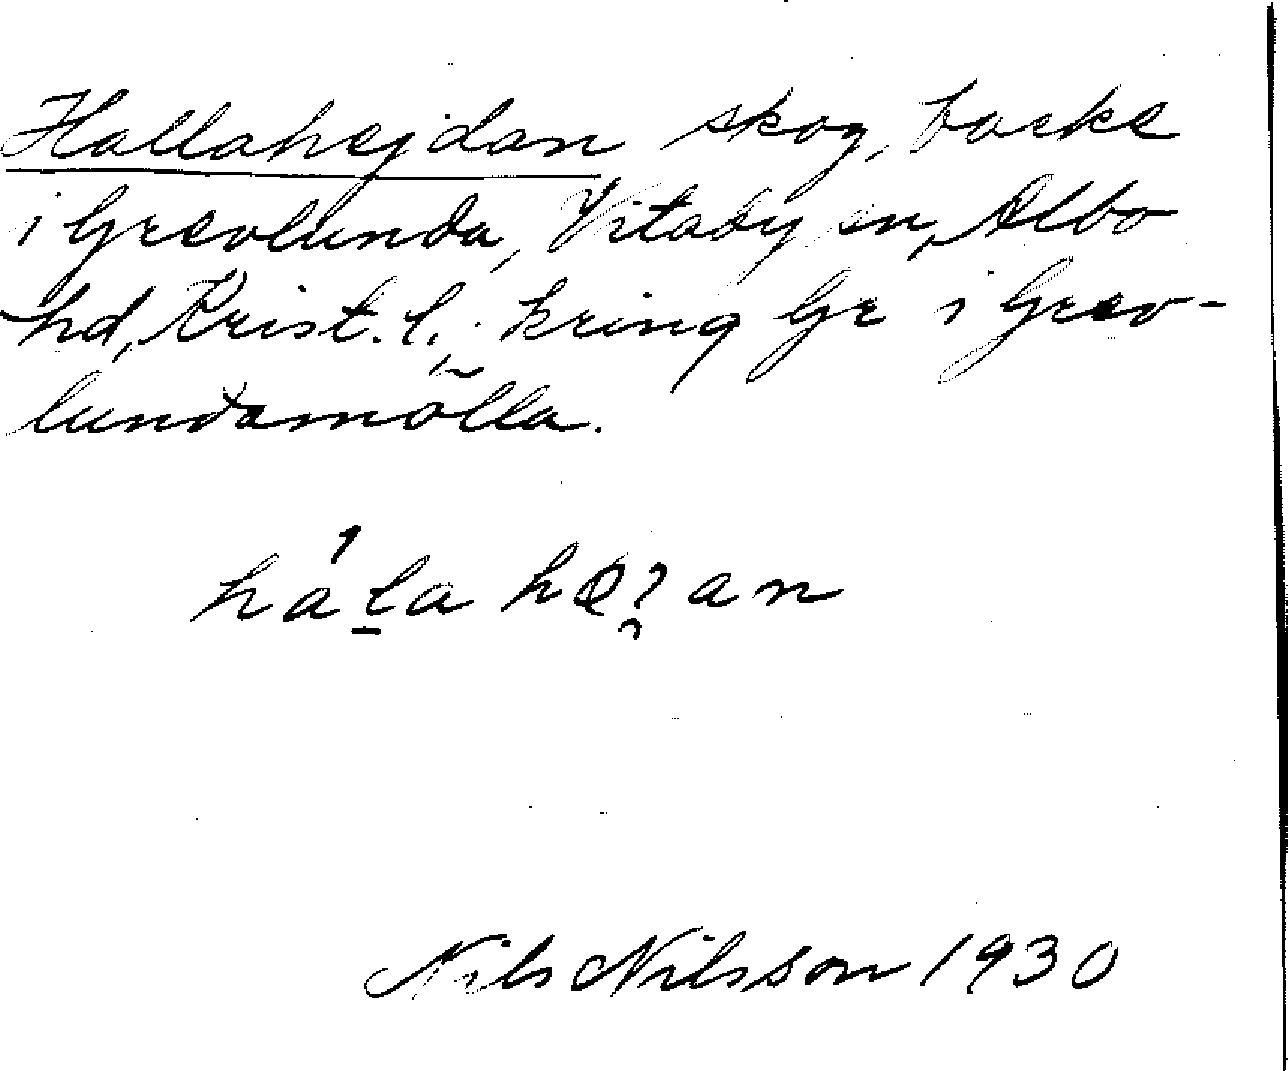 Hallahejdan skog, backe
i Grevlunda, Vitaby sn, Albo
hd, Krist. l.; kring Gr i Grev-
lundamölla.
Nils Nilsson 1930